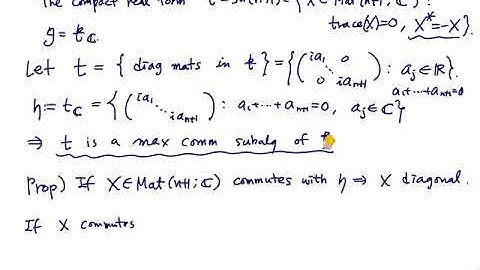 The compact real form k = su(n+1) = { X ∈ Mat(n+1; ℂ) :
trace(X)=0, X* = -X }.
g = k_ℂ.
Let t = { diag mats in k } = { ( ia₁ ⋱ 0 0 ia_{n+1} ) : a_j ∈ ℝ }.
a₁+⋯+a_{n+1}=0
h := t_ℂ = { ( ia₁ ⋱ ia_{n+1} ) : a₁+⋯+a_{n+1}=0, a_j ∈ ℂ }
⇒ t is a max comm subalg of k
Prop) If X ∈ Mat(n+1; ℂ) commutes with h ⇒ X diagonal.
If X commutes